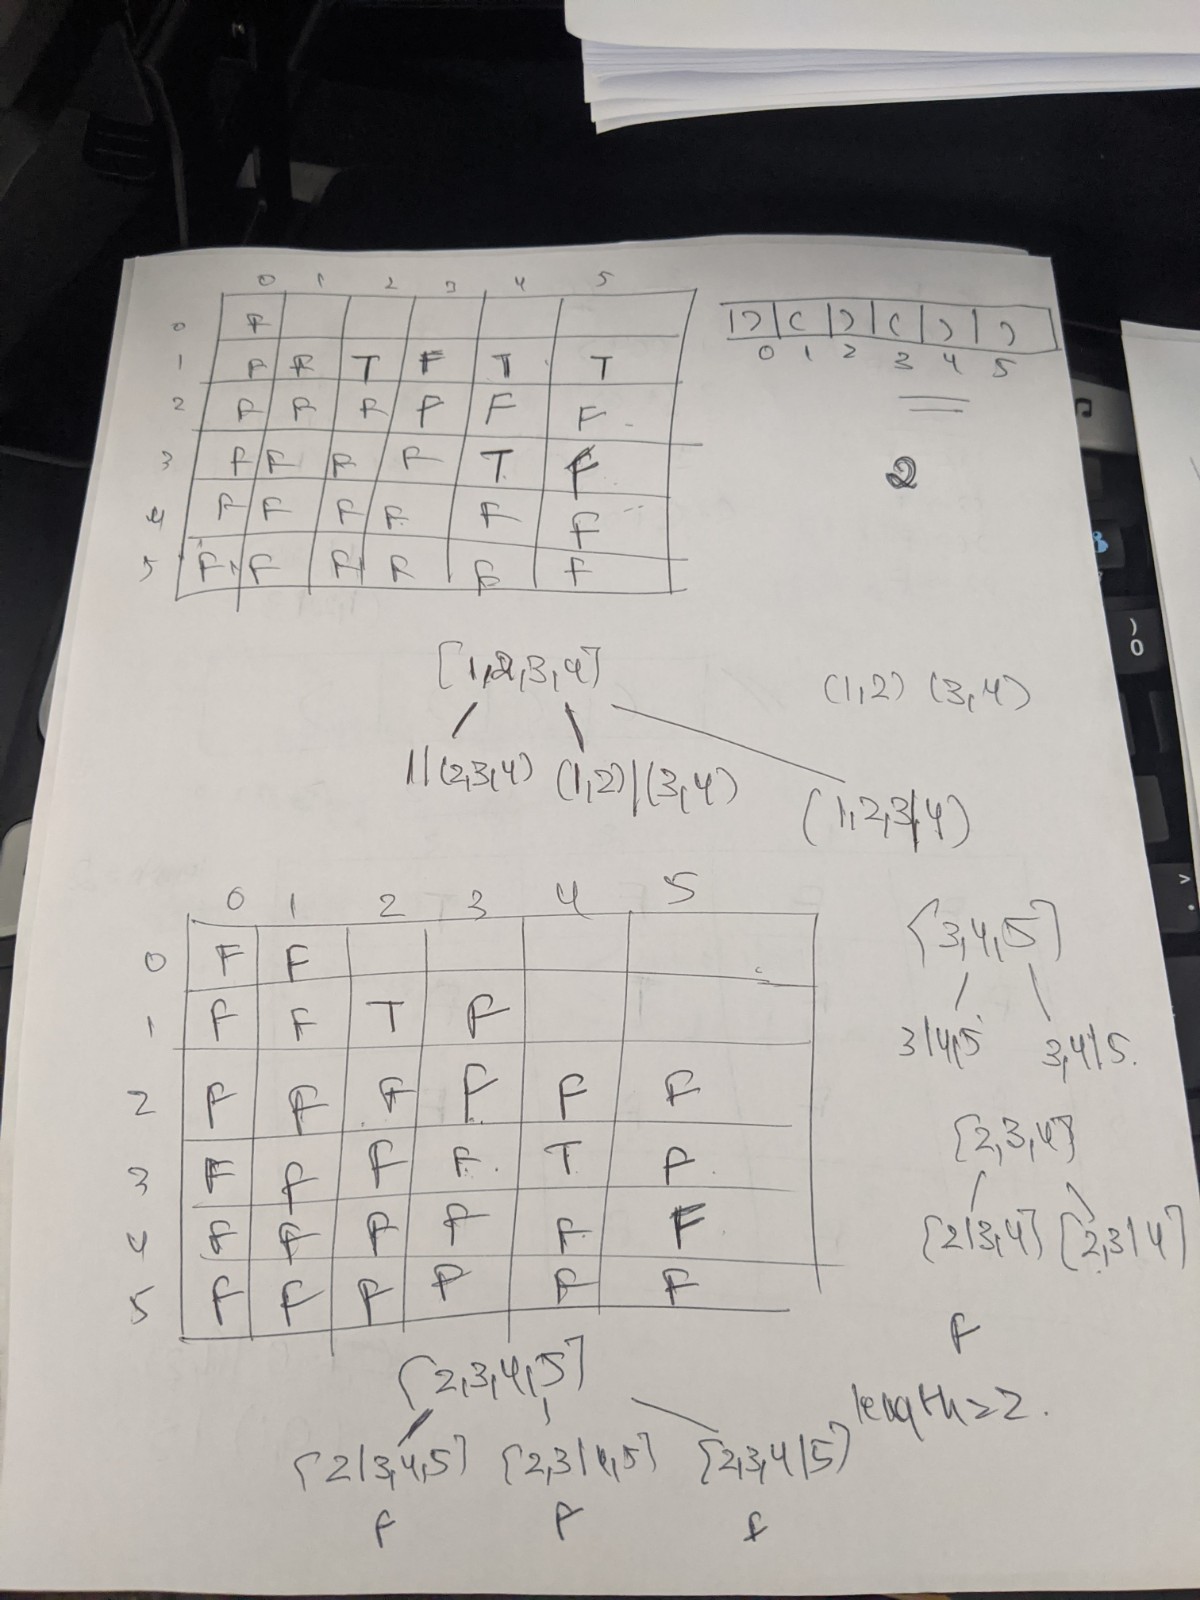 0 1 2 3 4 5
0 F
1 F F T F T T
2 F F F F F F
3 F F F F T F
4 F F F F F F
5 F F F F F F
) ( ) ( ) )
0 1 2 3 4 5
2
[1,2,3,4]
(1,2) (3,4)
1|(2,3,4) (1,2)|(3,4)
(1,2,3|4)
0 1 2 3 4 5
0 F F
1 F F T F
2 F F F F F F
3 F F F F T F
4 F F F F F F
5 F F F F F F
[3,4,5]
3|4,5 3,4|5.
[2,3,4]
[2|3,4] [2,3|4]
F
[2,3,4,5]
length=2.
[2|3,4,5] [2,3|4,5] [2,3,4|5]
F F F
)
0